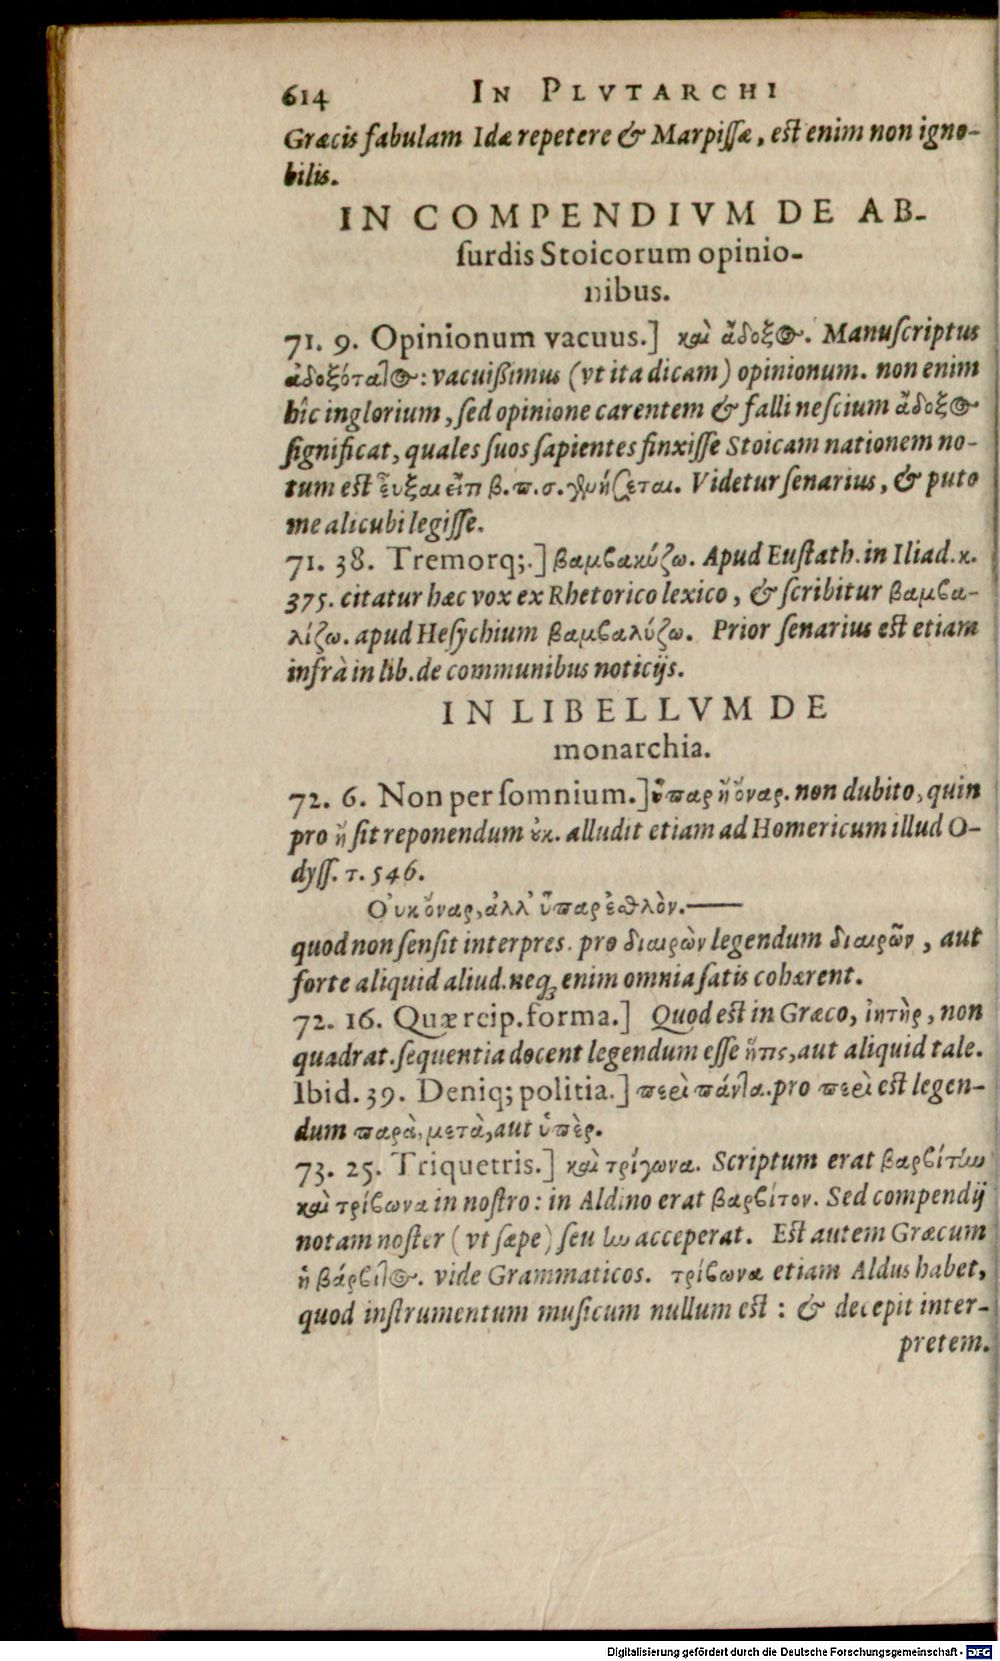 614 IN PLVTARCHI
Græcis fabulam Idæ repetere & Marpiſſæ, eſt enim non igno-
bilis.
IN COMPENDIVM DE AB-
ſurdis Stoicorum opinio-
nibus.
71. 9. Opinionum vacuus.] καὶ ἄδοξος. Manuſcriptus
ἀδοξότατος: vacuißimus (vt ita dicam) opinionum. non enim
hîc inglorium, ſed opinione carentem & falli neſcium ἄδοξος
ſignificat, quales ſuos ſapientes finxiſſe Stoicam nationem no-
tum eſt εὖξαι εἴπ β. π. σ. γνήσεται. Videtur ſenarius, & puto
me alicubi legiſſe.
71. 38. Tremorq;.] βαμβακύζω. Apud Euſtath. in Iliad. κ.
375. citatur hæc vox ex Rhetorico lexico, & ſcribitur βαμβα-
λίζω. apud Heſychium βαμβαλύζω. Prior ſenarius eſt etiam
infrà in lib. de communibus noticijs.
IN LIBELLVM DE
monarchia.
72. 6. Non per ſomnium.] ὕπαρ ἢ ὄναρ. non dubito, quin
pro ἢ ſit reponendum ȣκ. alludit etiam ad Homericum illud O-
dyſſ. τ. 546.
Οὐκ ὄναρ, ἀλλ' ὕπαρ ἐσθλὸν.——
quod non ſenſit interpres. pro διαιρὼν legendum διαιρῶν, aut
forte aliquid aliud. neq; enim omnia ſatis cohærent.
72. 16. Quæ reip. forma.] Quod eſt in Græco, ἱητὴρ, non
quadrat. ſequentia docent legendum eſſe ἥτις, aut aliquid tale.
Ibid. 39. Deniq; politia.] περὶ πάντα. pro περὶ eſt legen-
dum παρὰ, μετὰ, aut ὑπὲρ.
73. 25. Triquetris.] καὶ τρίγωνα. Scriptum erat βαρβίτων
καὶ τρίβωνα in noſtro: in Aldino erat βάρβιτον. Sed compendij
notam noſter (vt ſæpe) ſeu ων acceperat. Eſt autem Græcum
ἡ βάρβιτος. vide Grammaticos. τρίβωνα etiam Aldus habet,
quod inſtrumentum muſicum nullum eſt : & decepit inter-
pretem.
Digitalisierung gefördert durch die Deutsche Forschungsgemeinschaft - DFG